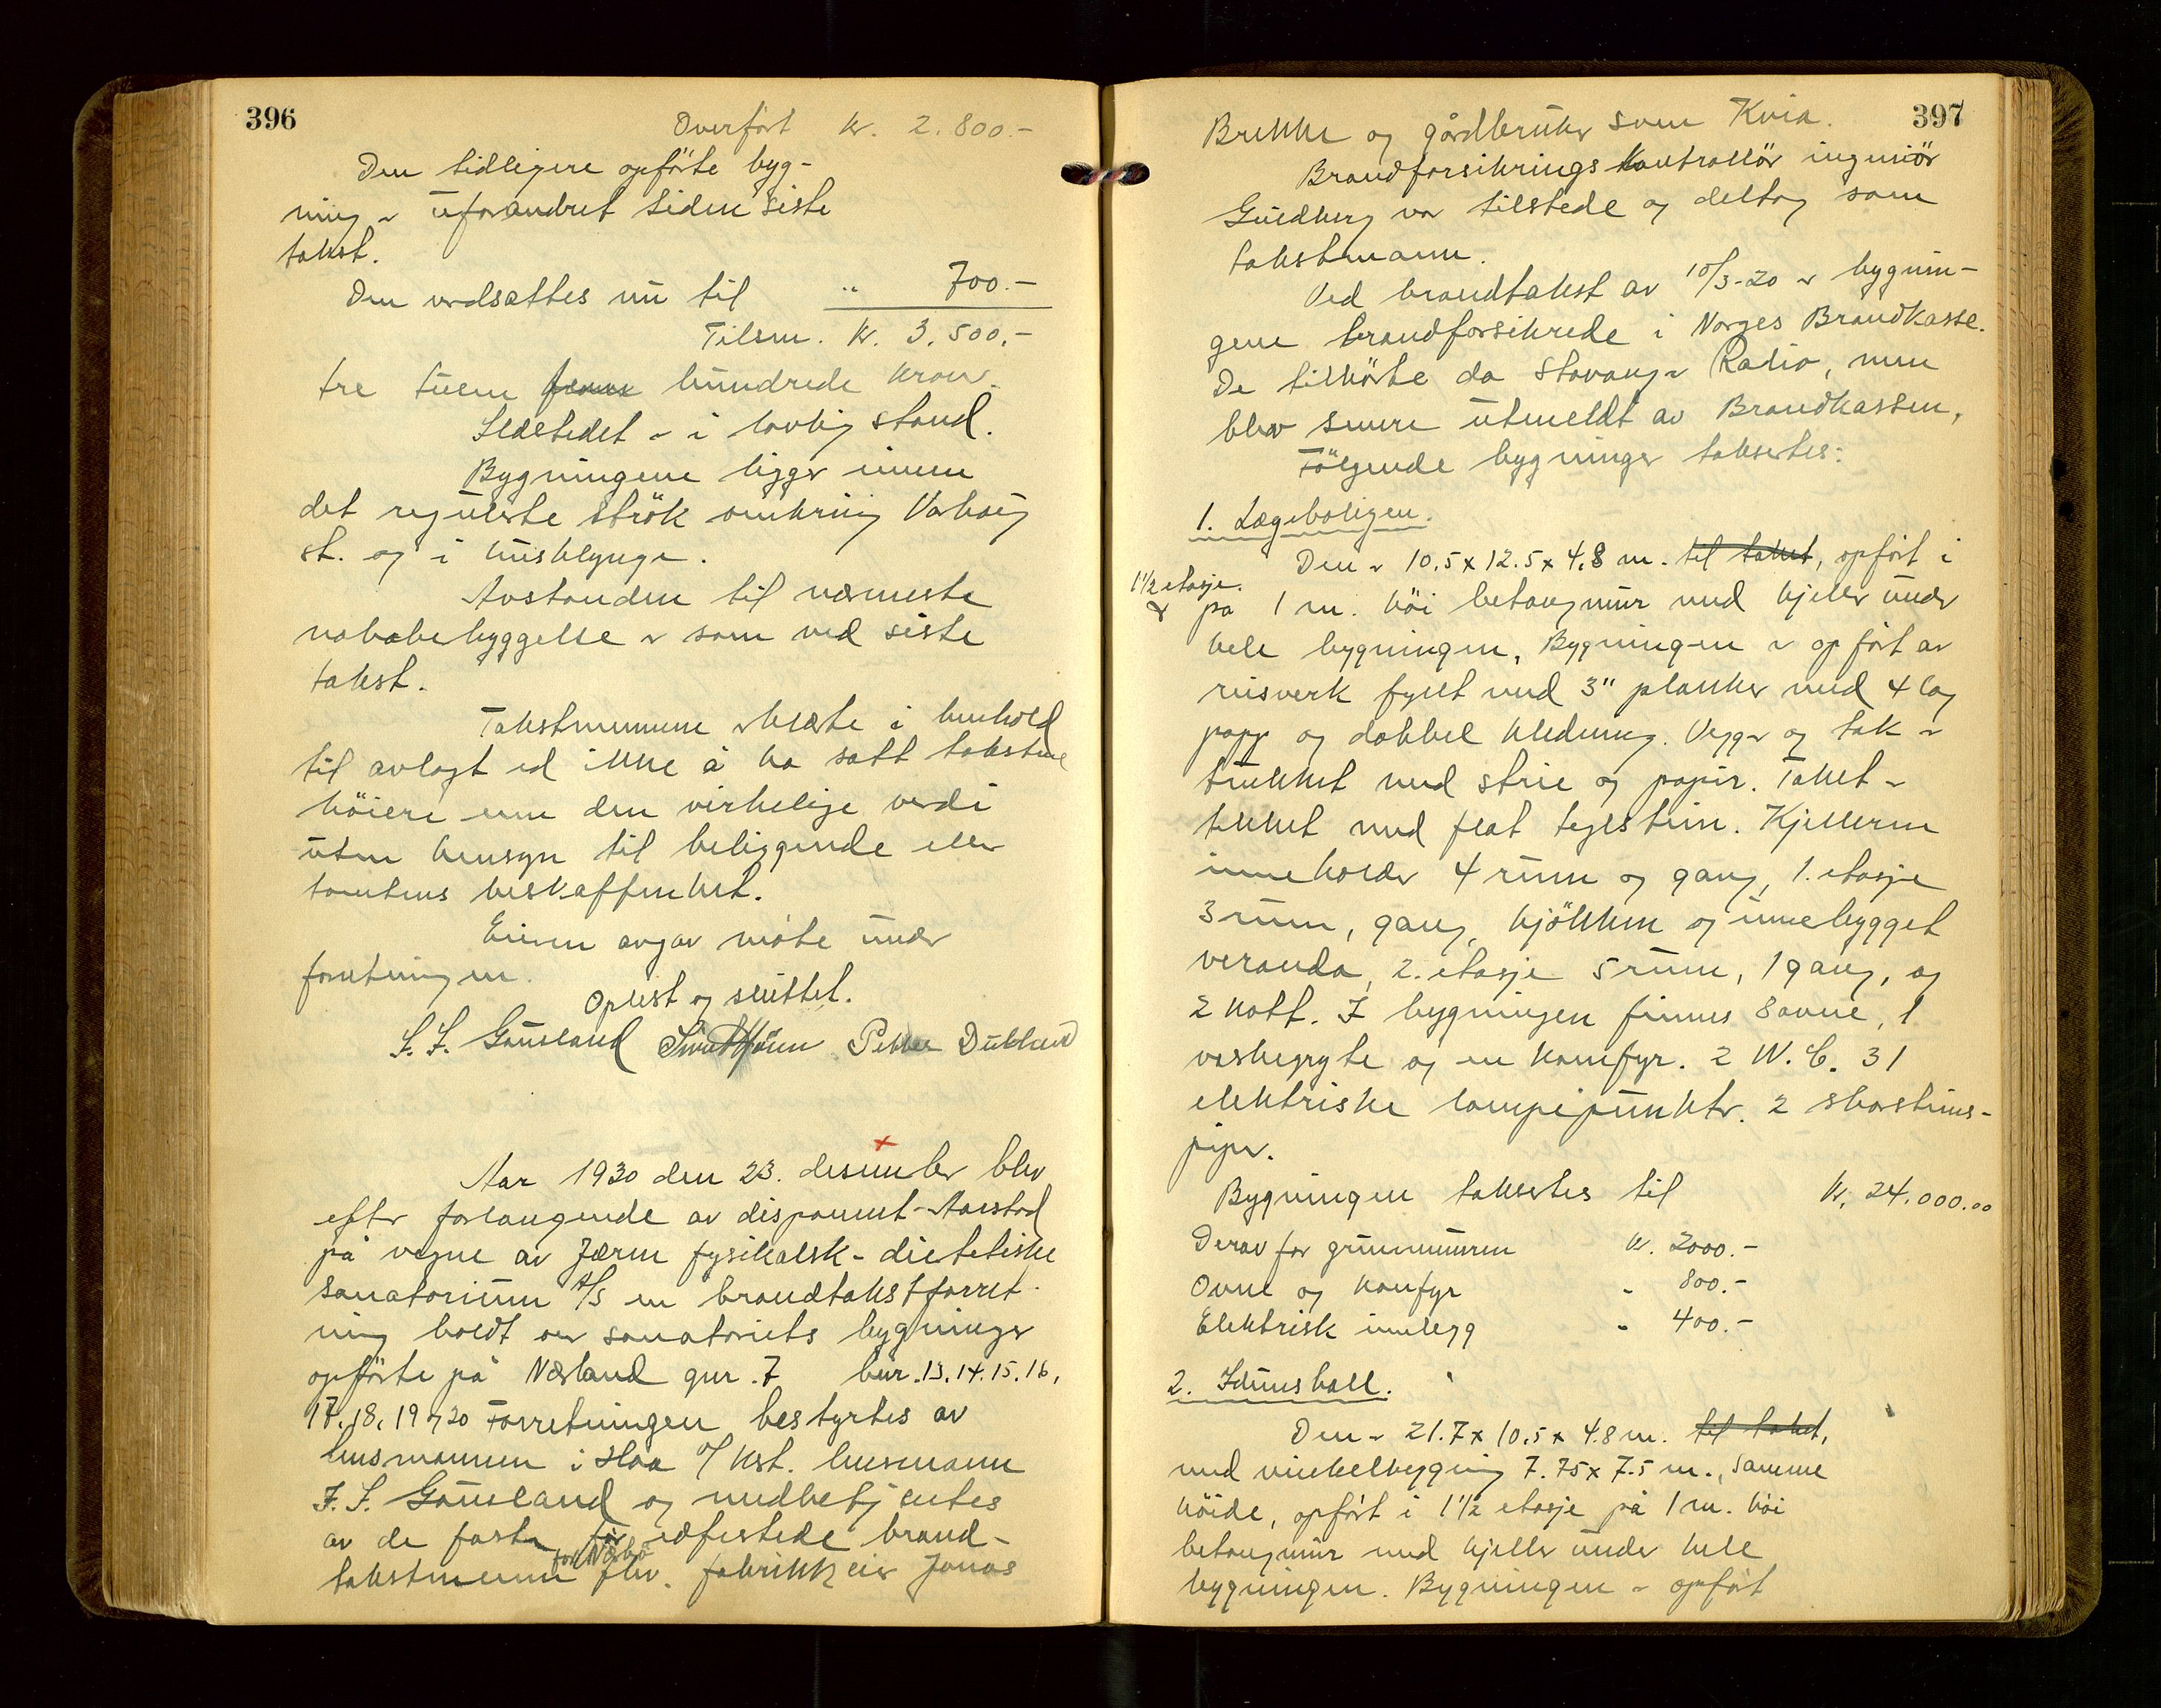 396
Overført kr. 2.800.-
Den tidligere opførte byg-
ning er uforandret siden siste
takst.
Den verdsættes nu til " 700.-
Tilsm. kr. 3.500.-
tre tusen fem hundrede kroner.
Ildstedet er i lovlig stand.
Bygningene ligger innen
det regulerte strøk omkring Varhaug
st. og i husklynge.
Avstanden til nærmeste
nabobebyggelse er som ved siste
takst.
Takstmennene erklærte i henhold
til avlagt ed ikke å ha satt takstene
høiere enn den virkelige verdi
uten hensyn til beliggende eller
tomtens beskaffenhet.
Eieren avgav møte under
forretningen.
Oplest og sluttet.
S. S. Gausland Peder Dubland
Aar 1930 den 23. desember blev
efter forlangende av disponent Aarstad
på vegne av Jæren fysikalsk-dietetiske
sanatorium A/S en brandtakstforret-
ning holdt over sanatoriets bygninger
opførte på Nærland gnr. 7 bnr. 13. 14. 15. 16,
17. 18. 19 og 20 Forretningen bestyrtes av
lensmannen i Haa o/ kst. lensmann
S. S. Gausland og medbetjentes
av de faste for edfestede brand-
for Nærbø
takstmenn fhv. fabrikkeier Jonas
397
Brekke og gårdbruker Sven Kvia.
Brandforsikringskontrollør ingeniør
Guldberg var tilstede og deltog som
takstmann.
Ved brandtakst av 10/3-20 er bygnin-
gene brandforsikrede i Norges Brandkasse.
De tilhørte da Stavanger Radio, men
blev senere utmeldt av Brandkassen.
Følgende bygninger taksertes:
1. Lægeboligen.
Den er 10.5 x 12.5 x 4.8 m. til taket, opført i
1 1/2 etasje.
på 1 m. høi betongmur med kjeller under
hele bygningen. Bygningen er opført av
reisverk fyllt med 3" planker med 4 lag
papp og dobbel kledning. Vegger og tak er
trukket med strie og papir. Taket er
tekket med flat teglstein. Kjelleren
inneholder 4 rum og gang, 1. etasje
3 rum, gang, kjøkken og innebygget
veranda, 2. etasje 5 rum, 1 gang, og
2 kott. I bygningen finnes 8 ovne, 1
vaskegryte og en komfyr. 2 W.C. 31
elektriske lampepunkter. 2 skorstens-
piper.
Bygningen taksertes til kr. 24.000.00
Derav for grunnmuren kr. 2000.-
Ovne og komfyr " 800.-
Elektrisk innlegg " 400.-
2. Idunshall.
Den er 21.7 x 10.5 x 4.8 m. til taket,
med vinkelbygning 7.75 x 7.5 m., samme
høide, opført i 1 1/2 etasje på 1 m. høi
betongmur med kjeller under hele
bygningen. Bygningen er opført